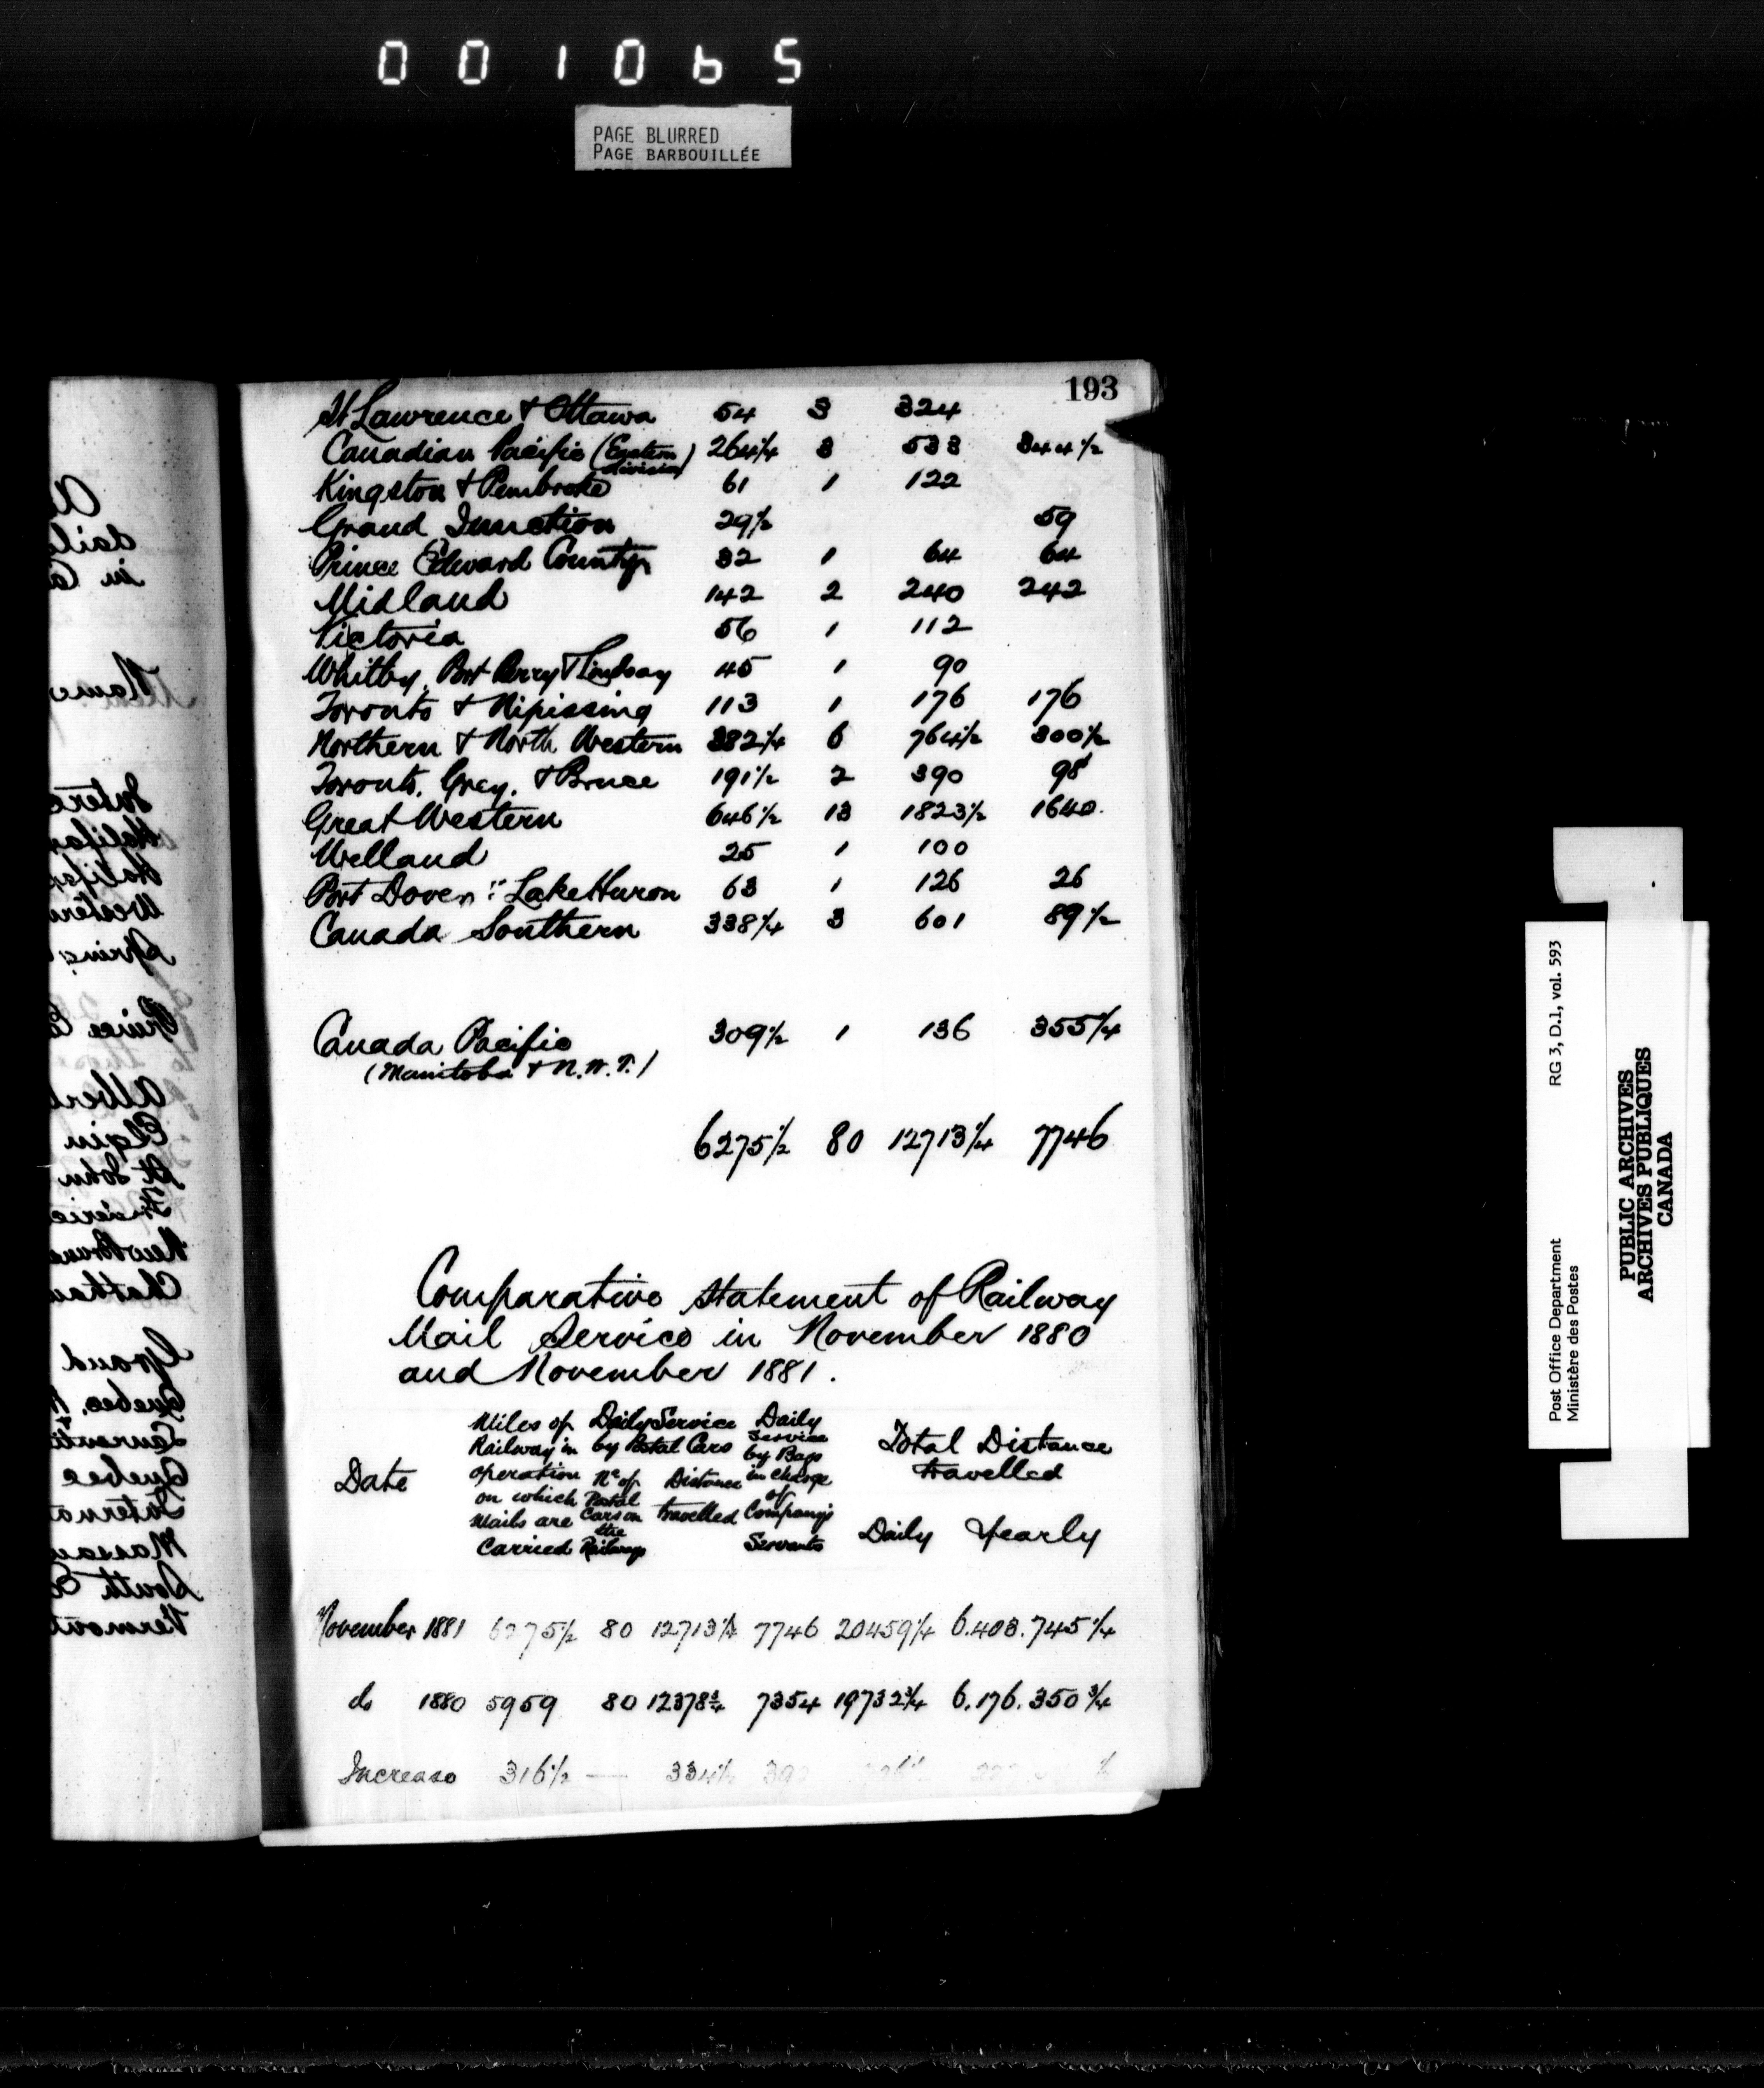 001065
PAGE BLURRED
PAGE BARBOUILLÉE
193
St Lawrence & Ottawa 54 3 324
Canadian Pacific (Eastern division) 264 1/4 3 533 344 1/2
Kingston & Pembroke 61 1 122
Grand Junction 29 1/2 59
Prince Edward County 32 1 64 64
Midland 142 2 240 242
Victoria 56 1 112
Whitby, Port Perry & Lindsay 45 1 90
Toronto & Nipissing 113 1 176 176
Northern & North Western 382 1/4 6 764 1/2 300 1/2
Toronto, Grey, & Bruce 191 1/2 2 390 98
Great Western 646 1/2 13 1823 1/2 1640
Welland 25 1 100
Port Dover " Lake Huron 63 1 126 26
Canada Southern 338 1/4 3 601 89 1/2
Canada Pacific 309 1/2 1 136 355 1/4
(Manitoba & N.W.T.)
6275 1/2 80 12713 1/4 7746
Comparative Statement of Railway
Mail Service in November 1880
and November 1881.
Date
Miles of Railway in operation on which Mails are Carried
Daily Service by Postal Cars
No of Postal Cars on the Railways
Distance travelled
Daily Service by Bags in charge of Company's Servants
Total Distance travelled
Daily Yearly
November 1881 6275 1/2 80 12713 1/4 7746 20459 1/4 6.403.745 1/4
do 1880 5959 80 12378 3/4 7354 19732 3/4 6.176.350 3/4
Increase 316 1/2 — 334 1/2 392
Post Office Department
Ministère des Postes
RG 3, D.1, vol. 593
PUBLIC ARCHIVES
ARCHIVES PUBLIQUES
CANADA